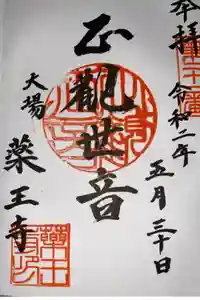 奉拝
令和二年
五月三十日
正觀世音
大場
薬王寺